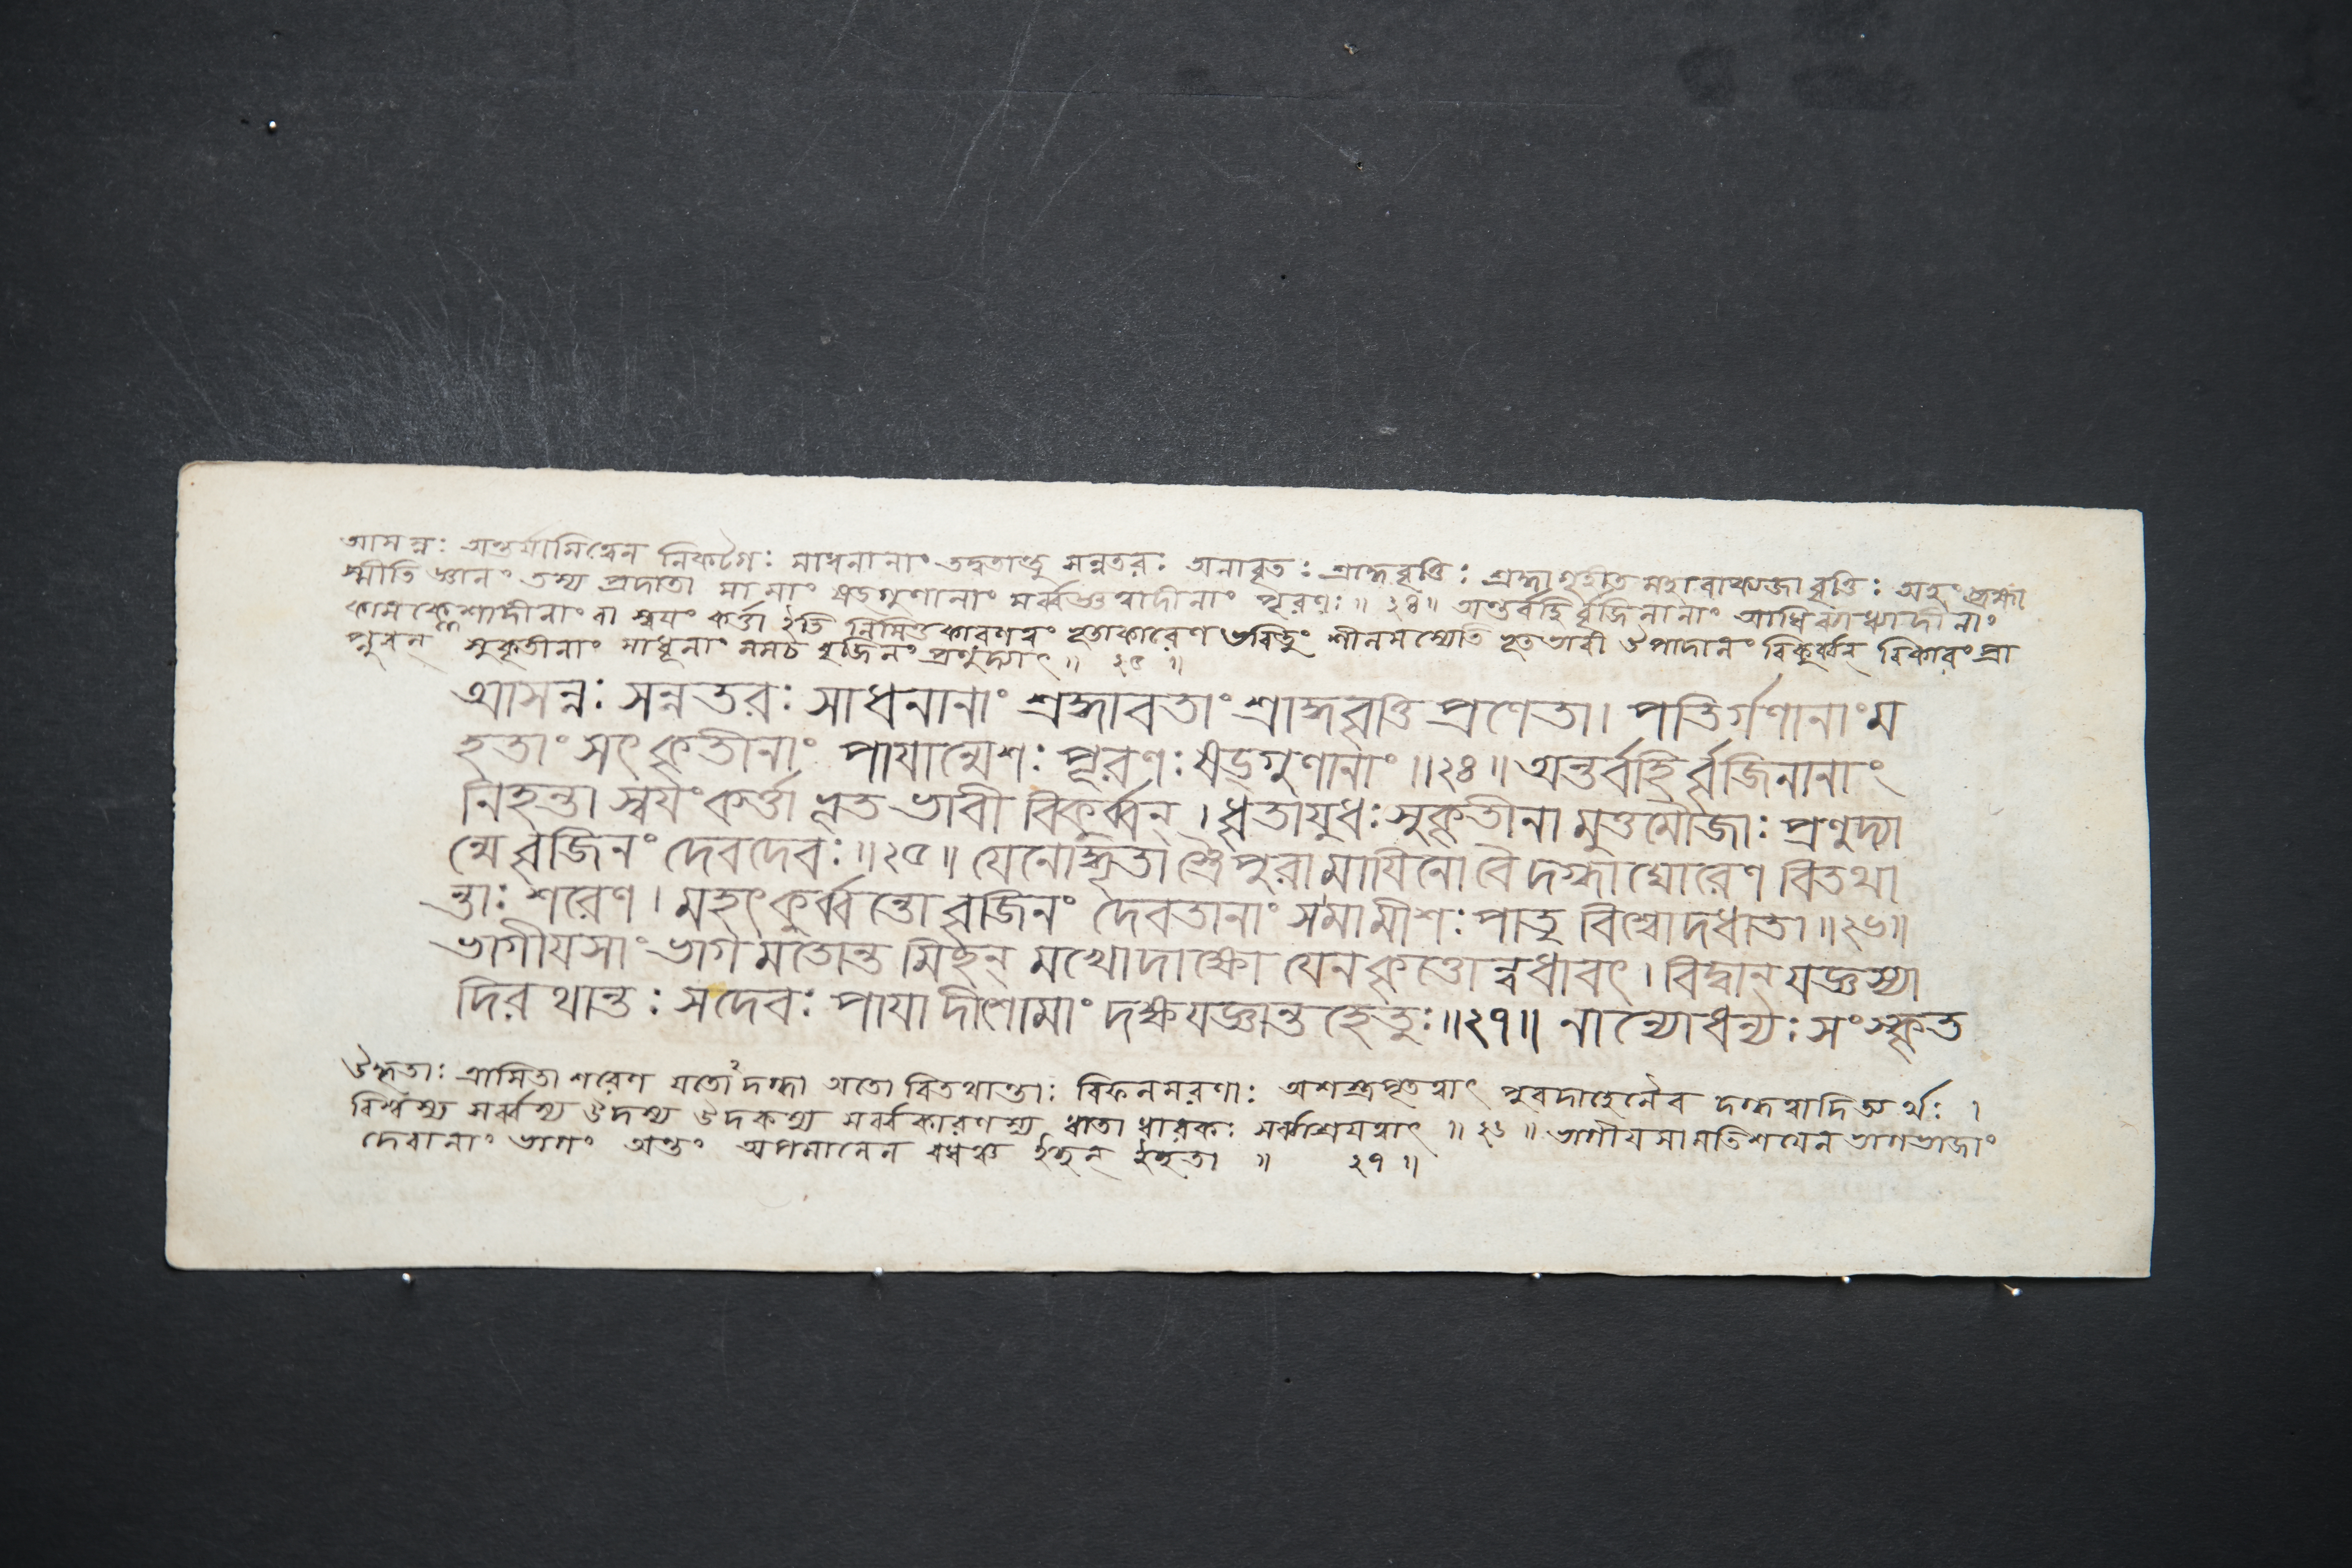 আসন্নঃ অন্তর্যামিত্বেন নিকটগৈঃ সাধনানাং তদ্বতান্তু সন্নতরঃ অনাবৃতঃ শ্রাদ্ধবৃত্তিঃ শ্রদ্ধাগৃহীত মহাবাক্যজা বৃত্তিঃ অহং ব্রহ্মা
স্মীতি জ্ঞানং তস্য প্রদাতা মা মাং ষড্গুণানাং সর্ব্বজ্ঞত্বাদীনাং পূরণঃ ॥ ২৪ ॥ অন্তর্বহি র্বৃজিনানাং আধি ব্যাধ্যাদীনাং
কামক্লেশাদীনাং বা স্বয়ং কর্ত্তা ইতি নিমিত্তকারণত্বং বৃতাকারেণ ভবিতুং শীলমস্যেতি বৃতভাবী উপাদানং বিকুর্ব্বন্ বিকারং প্রা
প্নুবন্ সুকৃতীনাং সাধূনাং মমচ বৃজিনং প্রণুদ্যাৎ ॥ ২৫ ॥
আসন্নঃ সন্নতরঃ সাধনানাং শ্রদ্ধাবতাং শ্রাদ্ধবৃত্তি প্রণেতা। পতির্গণানাং ম
হতাং সৎকৃতীনাং পায়ান্মেশঃ পূরণঃ ষড্গুণানাং ॥২৪॥ অন্তর্বহি র্বৃজিনানাং
নিহন্তা স্বয়ং কর্ত্তা বৃত ভাবী বিকুর্ব্বন্। ধৃতায়ুধঃ সুকৃতীনা মুত্তমৌজাঃ প্রণুদ্যা
ন্মে বৃজিনং দেবদেবঃ ॥২৫॥ যেনোদ্ধৃতা স্ত্রৈপুরা মায়িনো বৈ দগ্ধা ঘোরেণ বিতথা
ন্তাঃ শরেণ। মহৎকুর্ব্বন্তো বৃজিনং দেবতানাং সমামীশঃ পাতু বিশ্বোদধাতা ॥২৬॥
ভাগীয়সাং ভাগ মতোন্ত মিচ্ছন্ মখোদাক্ষো যেন কৃত্তো ন্বধাবৎ। বিদ্বান্ যজ্ঞস্যা
দির থান্তঃ সদেবঃ পায়া দীশোমাং দক্ষযজ্ঞান্ত হেতুঃ ॥২৭॥ নান্যোধন্যঃ সংস্কৃত
উদ্ধৃতাঃ ত্রাসিতা শরেণ যতো দগ্ধা অতো বিতথান্তাঃ বিফলমরণাঃ অশস্ত্রপূতত্বাৎ পুরদাহেনৈব দগ্ধত্বাদিত্যর্থঃ।
বিশ্বস্য সর্ব্বস্য উদস্য উদকস্য সর্ব্বকারণস্য ধাতা ধারকঃ সর্ব্বাশ্রয়ত্বাৎ ॥ ২৬ ॥ ভাগীয়সামতিশয়েন ভাগভাজাং
দেবানাং ভাগং অন্তং অপমানেন বধঞ্চ ইচ্ছন্ ইচ্ছতা ॥ ২৭ ॥